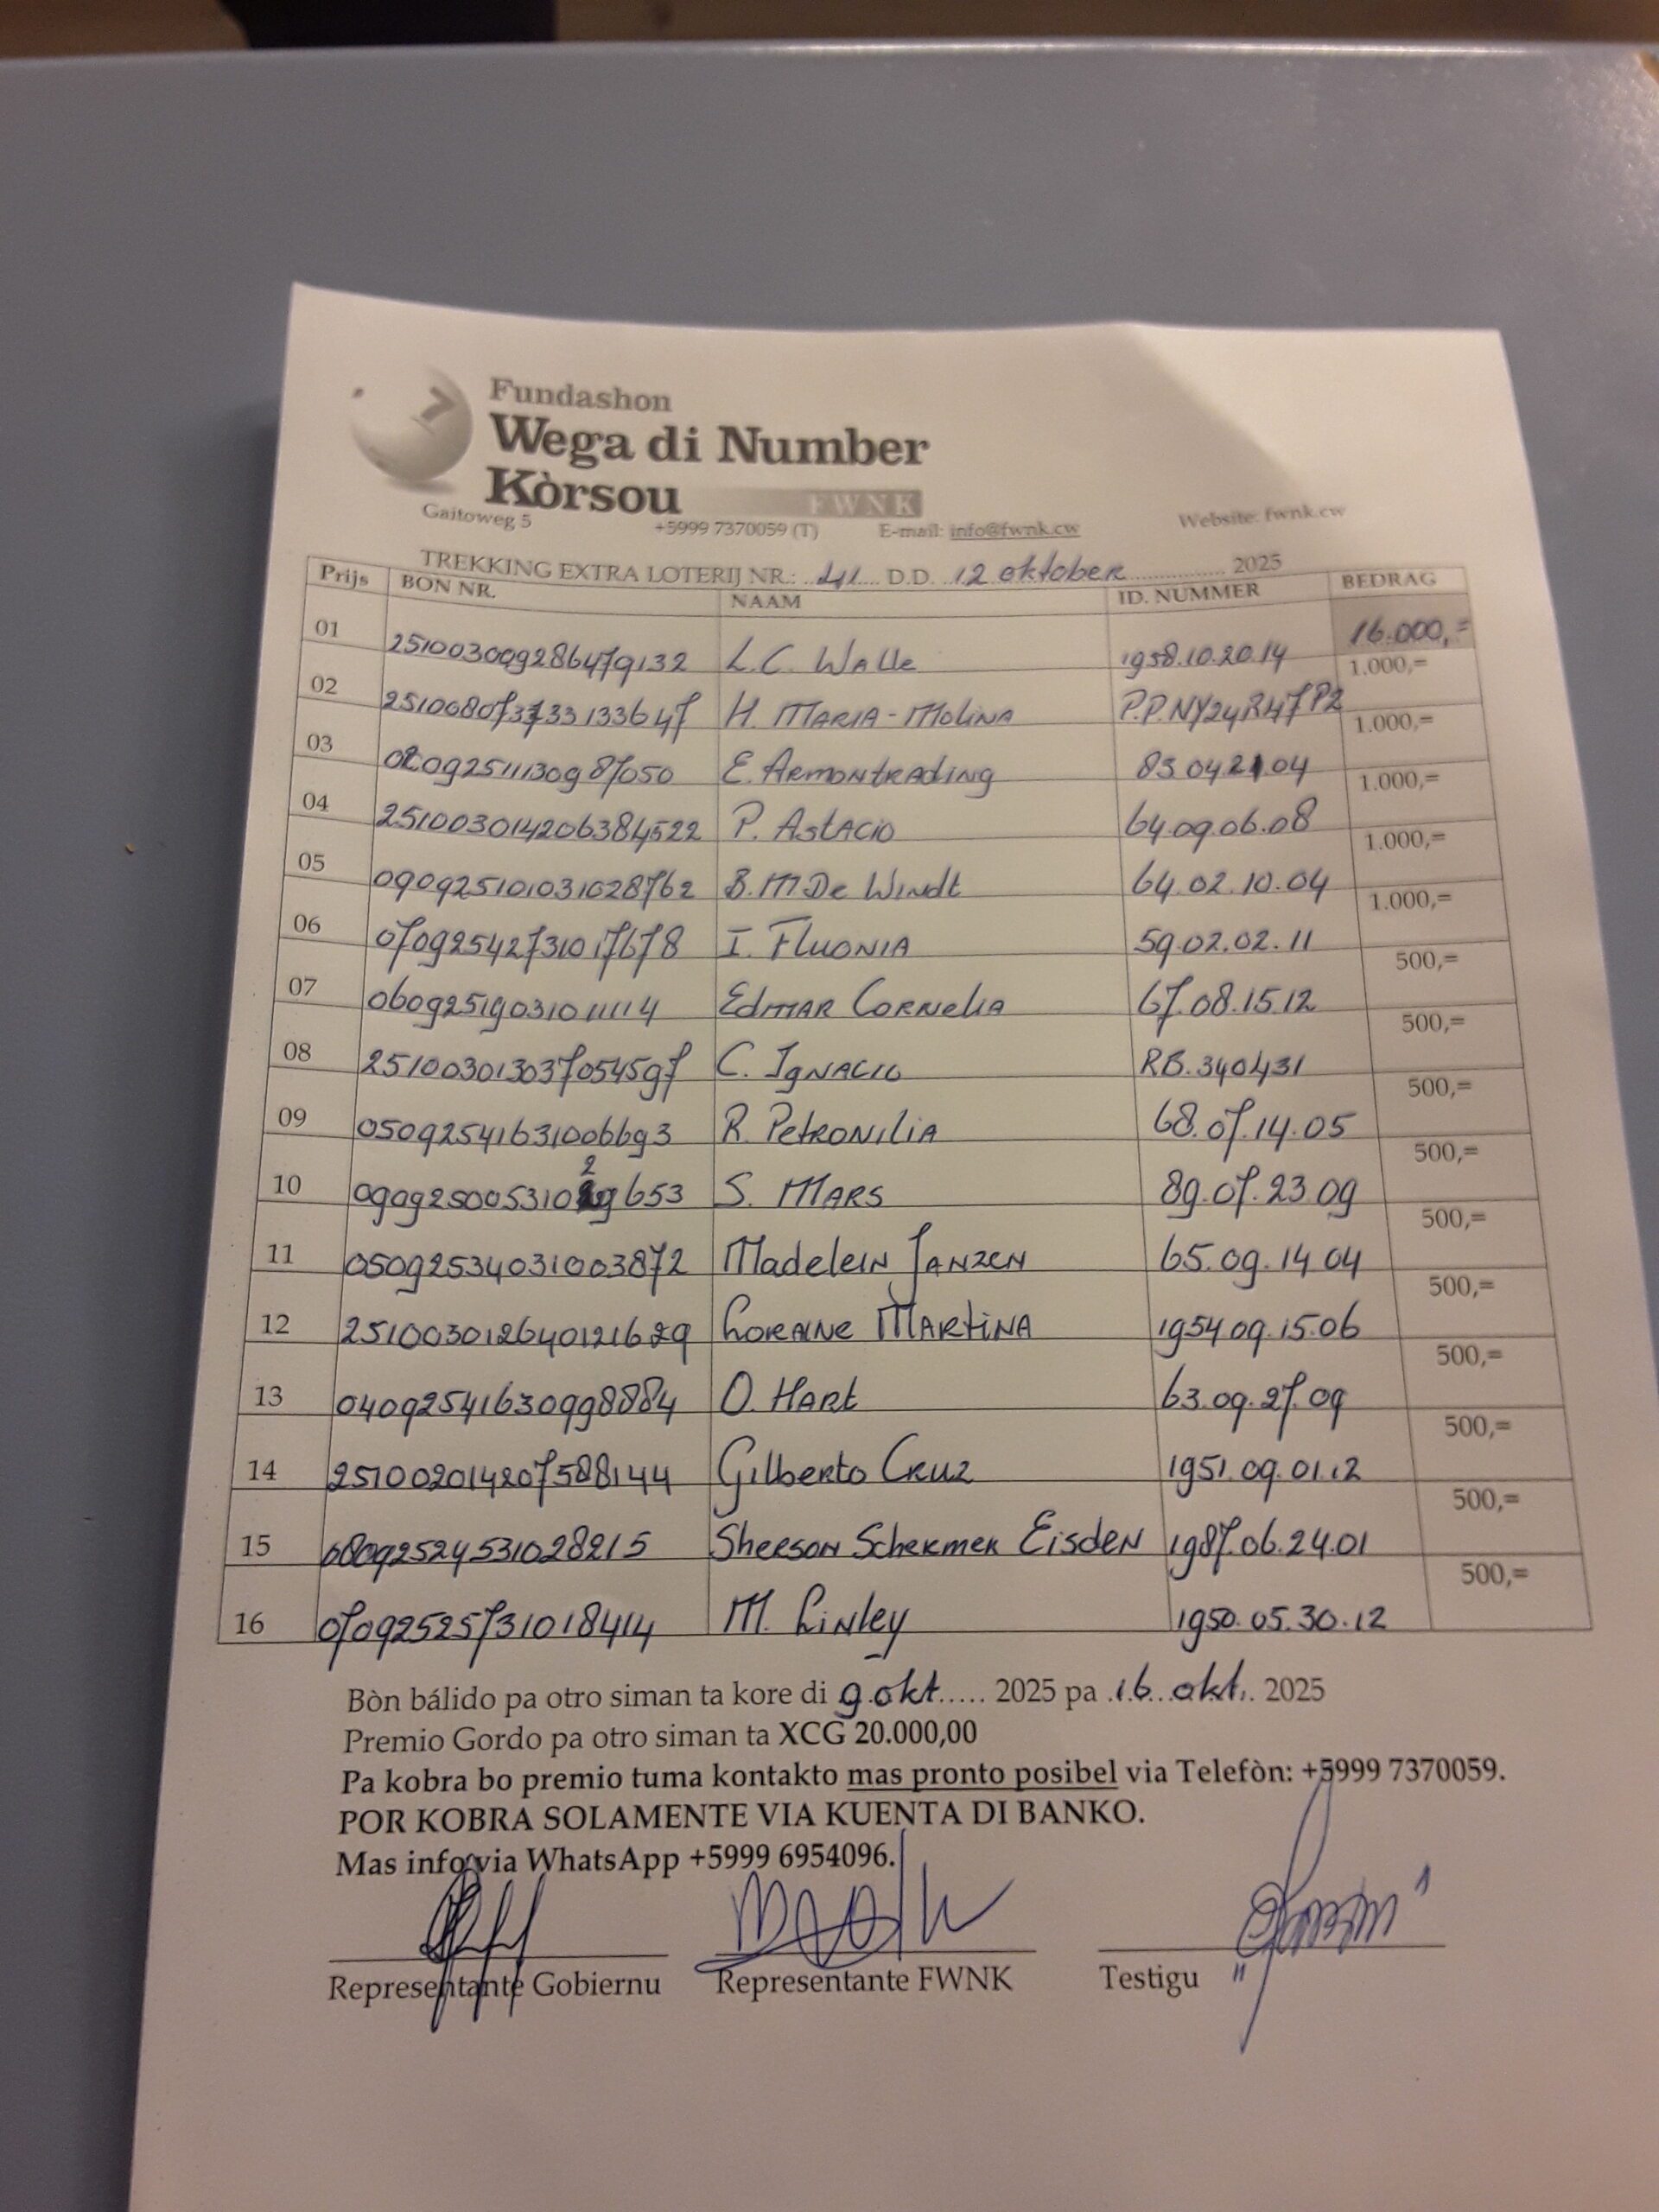 7
Fundashon
Wega di Number
Kòrsou FWNK
Gaitoweg 5 +5999 7370059 (T) E-mail: info@fwnk.cw Website: fwnk.cw
TREKKING EXTRA LOTERIJ NR.: 41 D.D. 12 oktober 2025
Prijs BON NR. NAAM ID. NUMMER BEDRAG
01 251003009286479132 L.C. Walle 1958.10.20.14 16.000,=
02 H. Maria-Molina P.P.NY24R47P2 1.000,=
03 E. Armontrading 83.04.21.04 1.000,=
04 251003014206384522 P. Astacio 64.09.06.08 1.000,=
05 090925101031028762 B.M De Windt 64.02.10.04 1.000,=
06 07092542731017678 I. Fluonia 59.02.02.11 1.000,=
07 0609251903101114 Edmar Cornelia 67.08.15.12 500,=
08 251003013037054597 C. Ignacio RB.340431 500,=
09 05092541631006693 R. Petronilia 68.07.14.05 500,=
10 S. Mars 89.07.23 09 500,=
11 05092534031003872 Madelein Janzen 65.09.14 04 500,=
12 251003012640121629 Loraine Martina 1954 09.15.06 500,=
13 04092541630998884 O. Hart 63.09.27.09 500,=
14 251002014207588144 Gilberto Cruz 1951.09.01.12 500,=
15 08092524531028215 Sherson Schermer Eisden 1987.06.24.01 500,=
16 07092525731018414 M. Linley 1950.05.30.12 500,=
Bòn bálido pa otro siman ta kore di 9 okt..... 2025 pa .16...okt... 2025
Premio Gordo pa otro siman ta XCG 20.000,00
Pa kobra bo premio tuma kontakto mas pronto posibel via Telefòn: +5999 7370059.
POR KOBRA SOLAMENTE VIA KUENTA DI BANKO.
Mas info via WhatsApp +5999 6954096.
Representante Gobiernu Representante FWNK Testigu